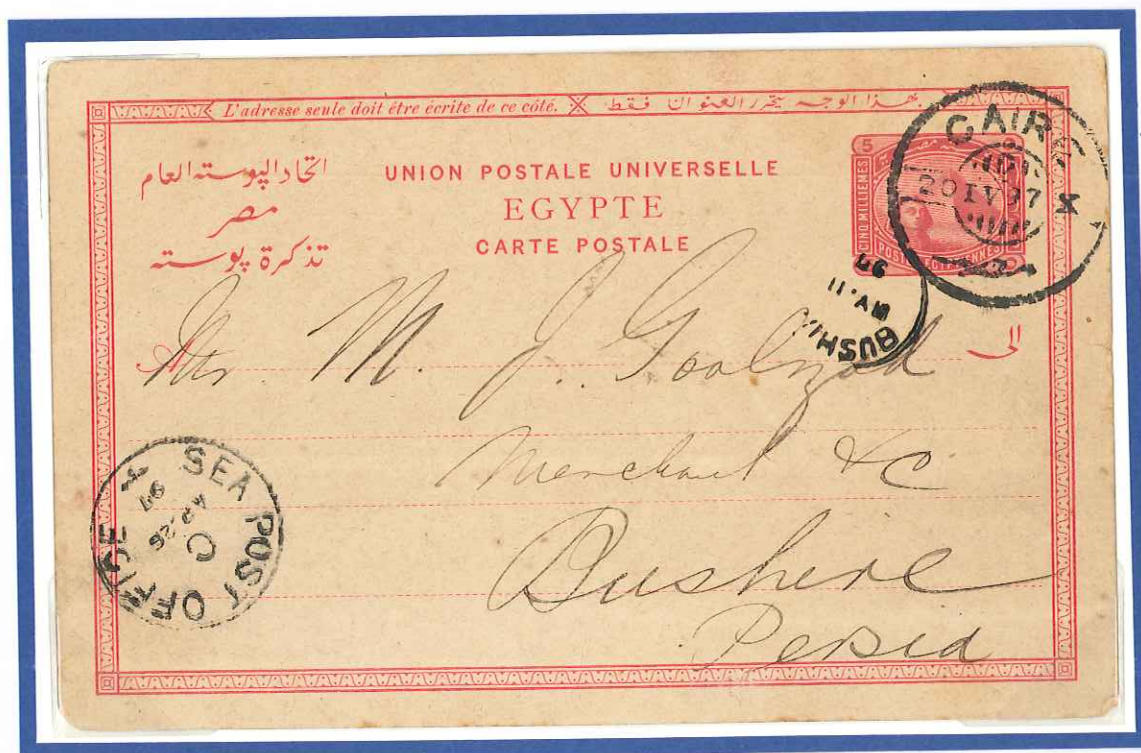 L'adresse seule doit être écrite de ce côté. بهذا الوجه يحرر العنوان فقط
اتحاد البوسته العام
مصر
تذكرة پوسته
UNION POSTALE UNIVERSELLE
EGYPTE
CARTE POSTALE
5
CINQ MILLIEMES
POSTES EGYPTIENNES
CAIR
20 IV 97
97
MY. 11
BUSHI
A
الى
Mr. M. J.
Merchant & C
Bushire
Persia
SEA POST OFFICE
C
AP. 26
97